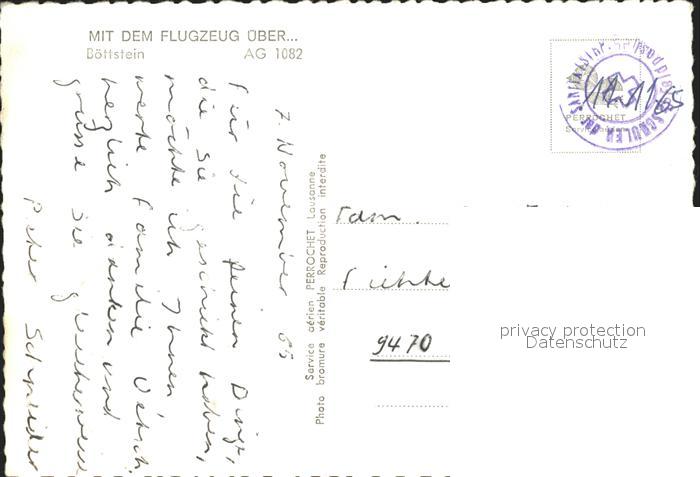 MIT DEM FLUGZEUG ÜBER...
Böttstein AG 1082
7. November 65
Für die feinen Dinge,
die Sie geschickt haben,
möchte ich Ihnen
werte Familie
herzlich danken und
grüsse Sie
Peter Schneider
Service aérien PERROCHET Lausanne
Photo bromure véritable Reproduction interdite
PERROCHET
Fam.
9470
privacy protection
Datenschutz